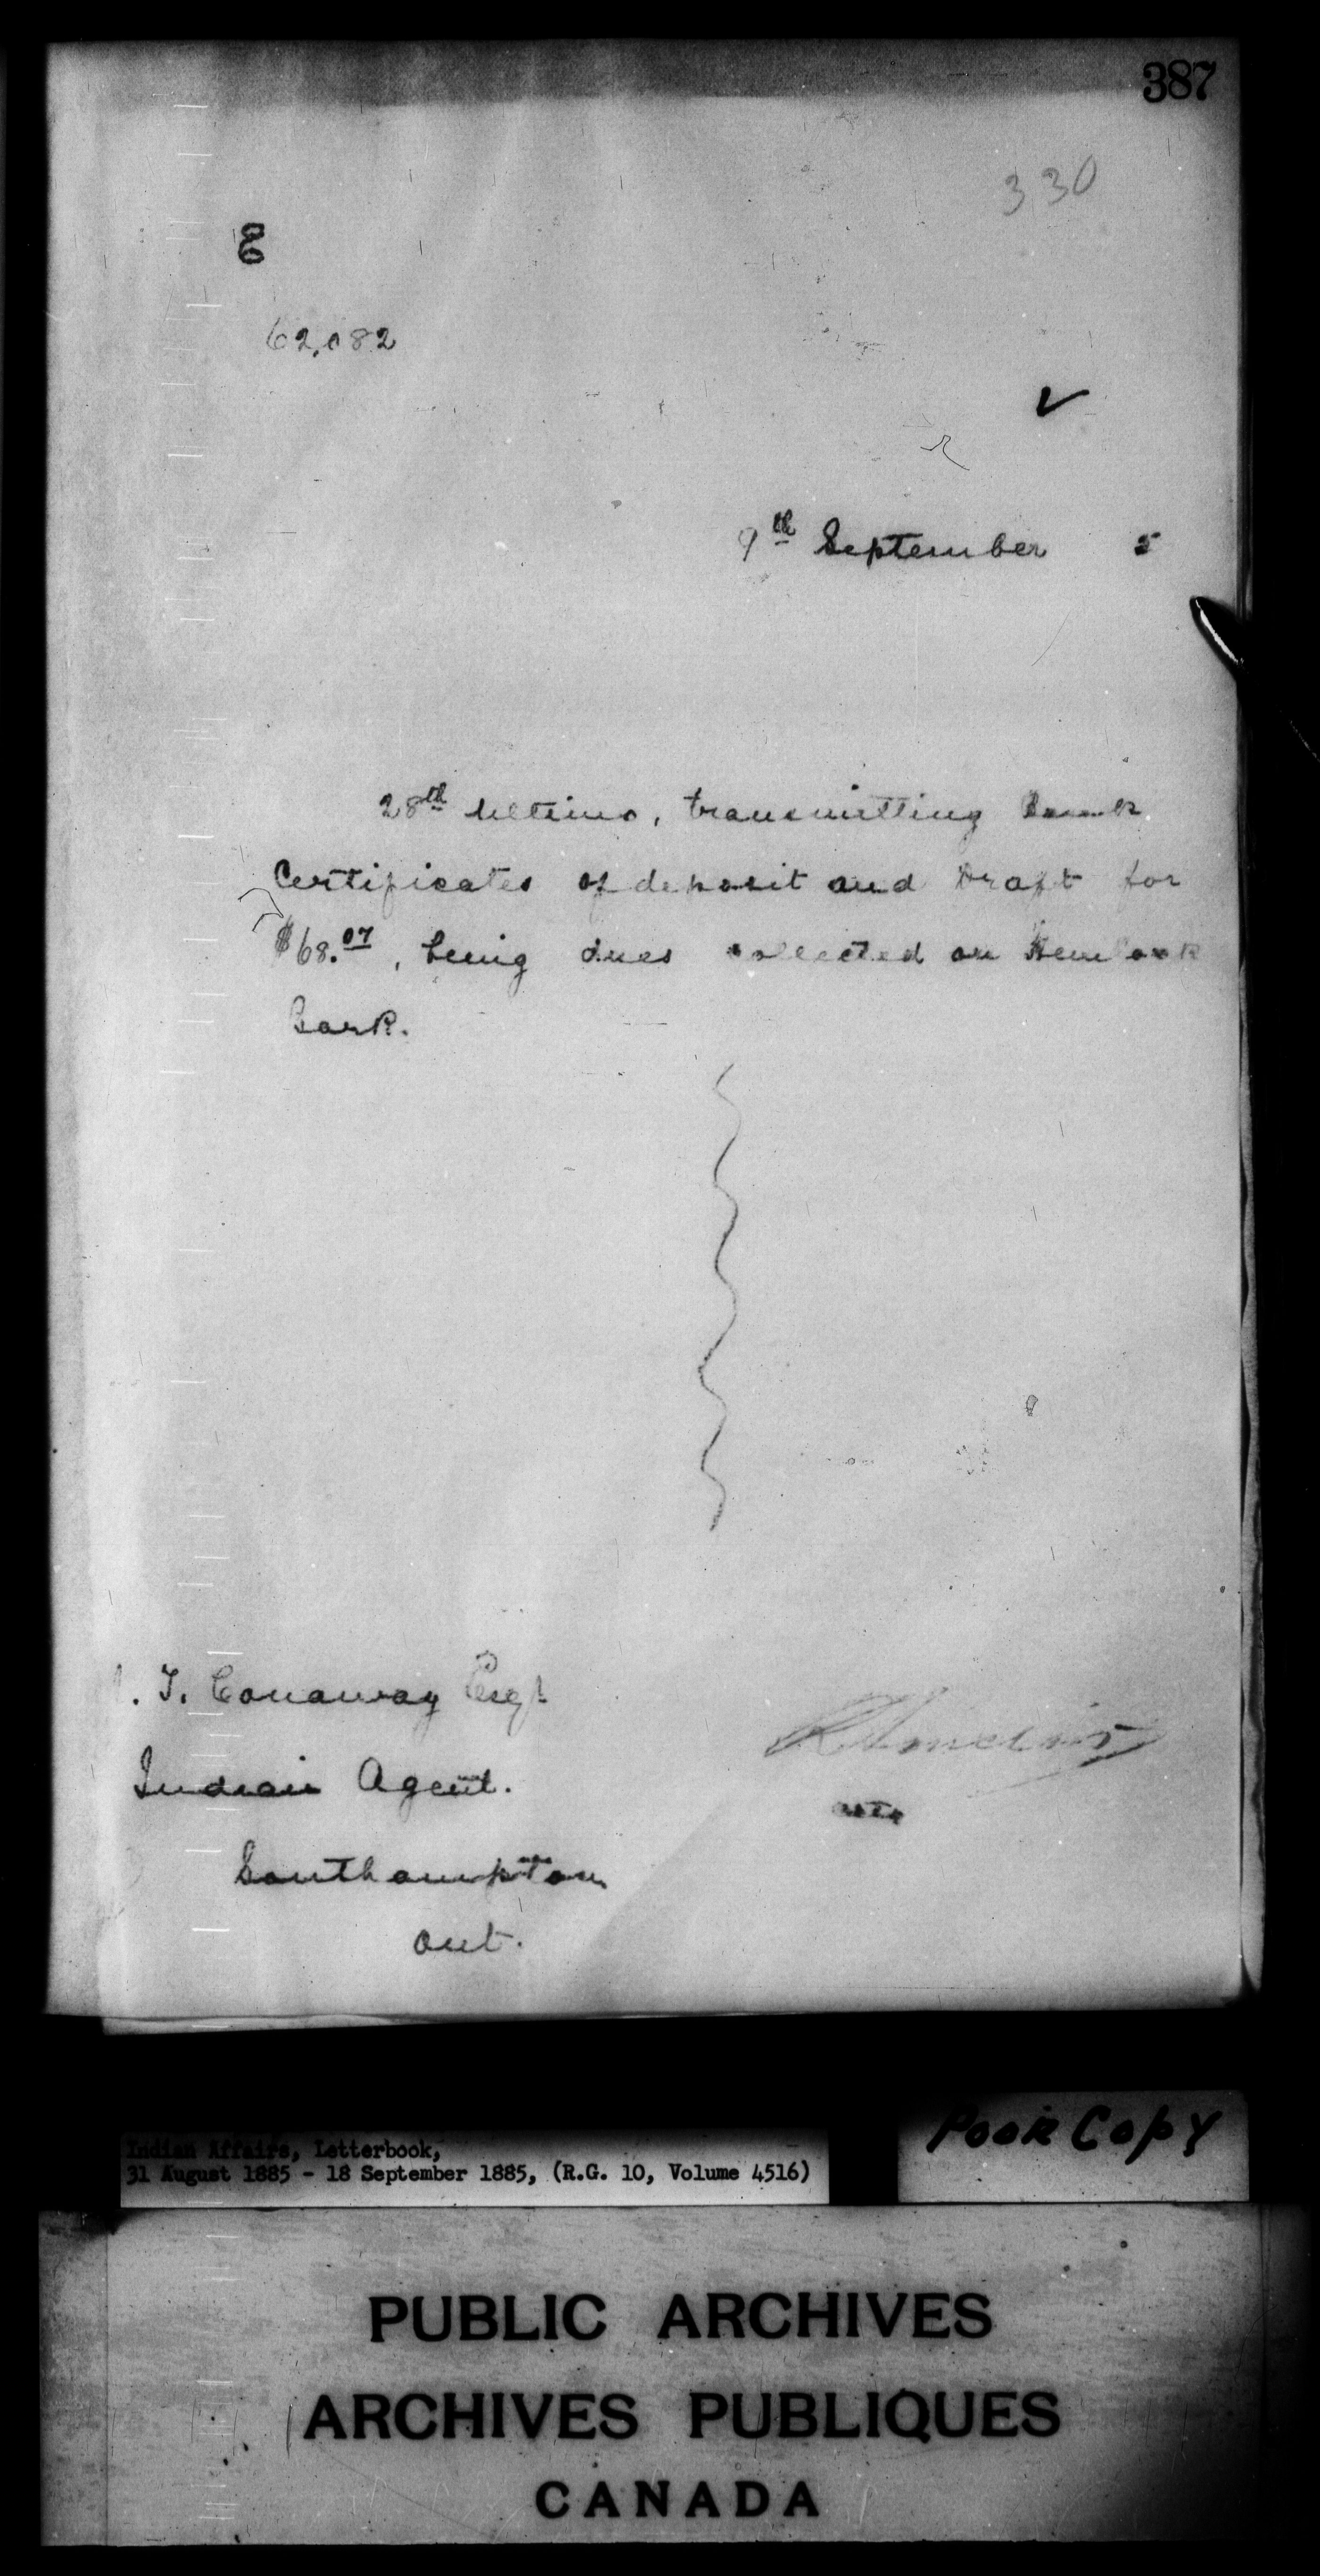 387
330
E
62,082
9th September 5
28th Ultimo, transmitting Bank
Certificates of deposit and Draft for
$68.07, being dues collected on Hemlock
Bark.
. T. Conaway Esqr
Indian Agent.
Southampton
Ont.
Indian Affairs, Letterbook,
31 August 1885 - 18 September 1885, (R.G. 10, Volume 4516)
Poor Copy
PUBLIC ARCHIVES
ARCHIVES PUBLIQUES
CANADA